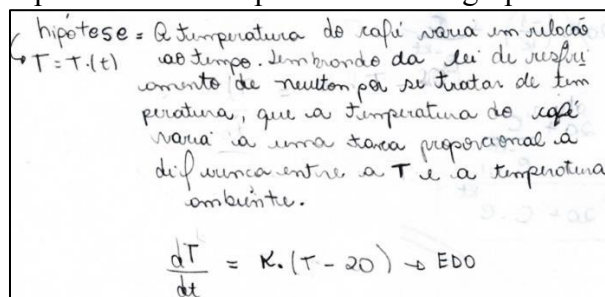 hipótese = A temperatura do café varia em relação
T = T.(t) ao tempo. Lembrando da lei de resfri
amento de newton por se tratar de tem
peratura, que a temperatura do café
varia a uma taxa proporcional á
diferença entre a T e a temperatura
ambiente.
dT/dt = K.(T - 20) → EDO